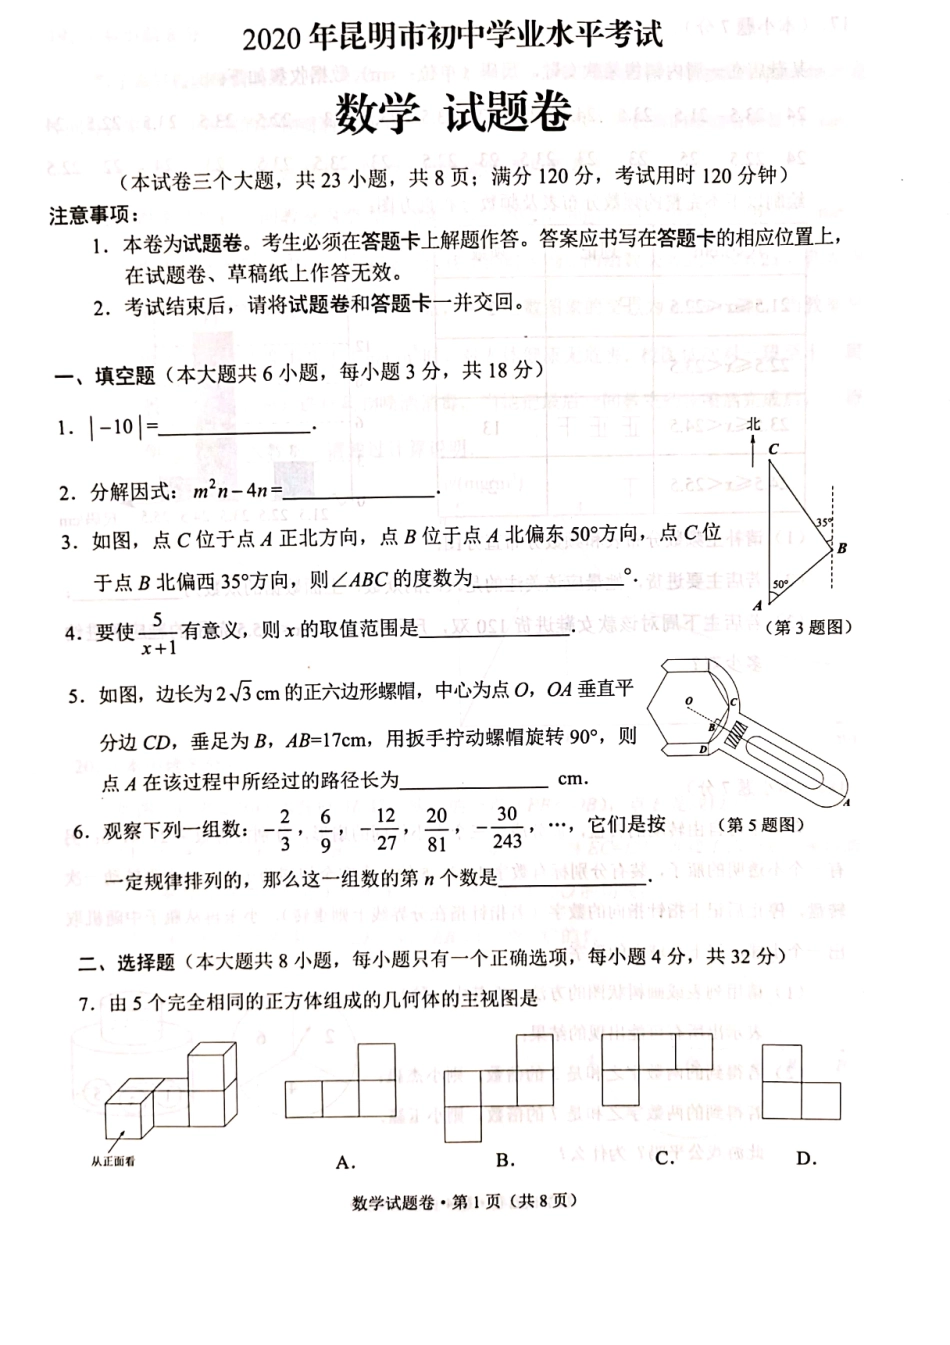 2020 年昆明市初中学业水平考试
数学 试题卷
（本试卷三个大题，共 23 小题，共 8 页；满分 120 分，考试用时 120 分钟）
注意事项：
1．本卷为试题卷。考生必须在答题卡上解题作答。答案应书写在答题卡的相应位置上，
在试题卷、草稿纸上作答无效。
2．考试结束后，请将试题卷和答题卡一并交回。
一、填空题（本大题共 6 小题，每小题 3 分，共 18 分）
1. |−10|=____________.
2．分解因式：m²n−4n=____________.
3．如图，点 C 位于点 A 正北方向，点 B 位于点 A 北偏东 50°方向，点 C 位
于点 B 北偏西 35°方向，则∠ABC 的度数为____________°.
北
C
35°
B
50°
A
（第 3 题图）
4．要使 5/(x+1) 有意义，则 x 的取值范围是____________.
5．如图，边长为 2√3 cm 的正六边形螺帽，中心为点 O，OA 垂直平
分边 CD，垂足为 B，AB=17cm，用扳手拧动螺帽旋转 90°，则
点 A 在该过程中所经过的路径长为____________cm.
O
C
B
D
A
（第 5 题图）
6．观察下列一组数：−2/3，6/9，−12/27，20/81，−30/243，…，它们是按
一定规律排列的，那么这一组数的第 n 个数是____________.
二、选择题（本大题共 8 小题，每小题只有一个正确选项，每小题 4 分，共 32 分）
7．由 5 个完全相同的正方体组成的几何体的主视图是
从正面看
A.
B.
C.
D.
数学试题卷·第 1 页（共 8 页）